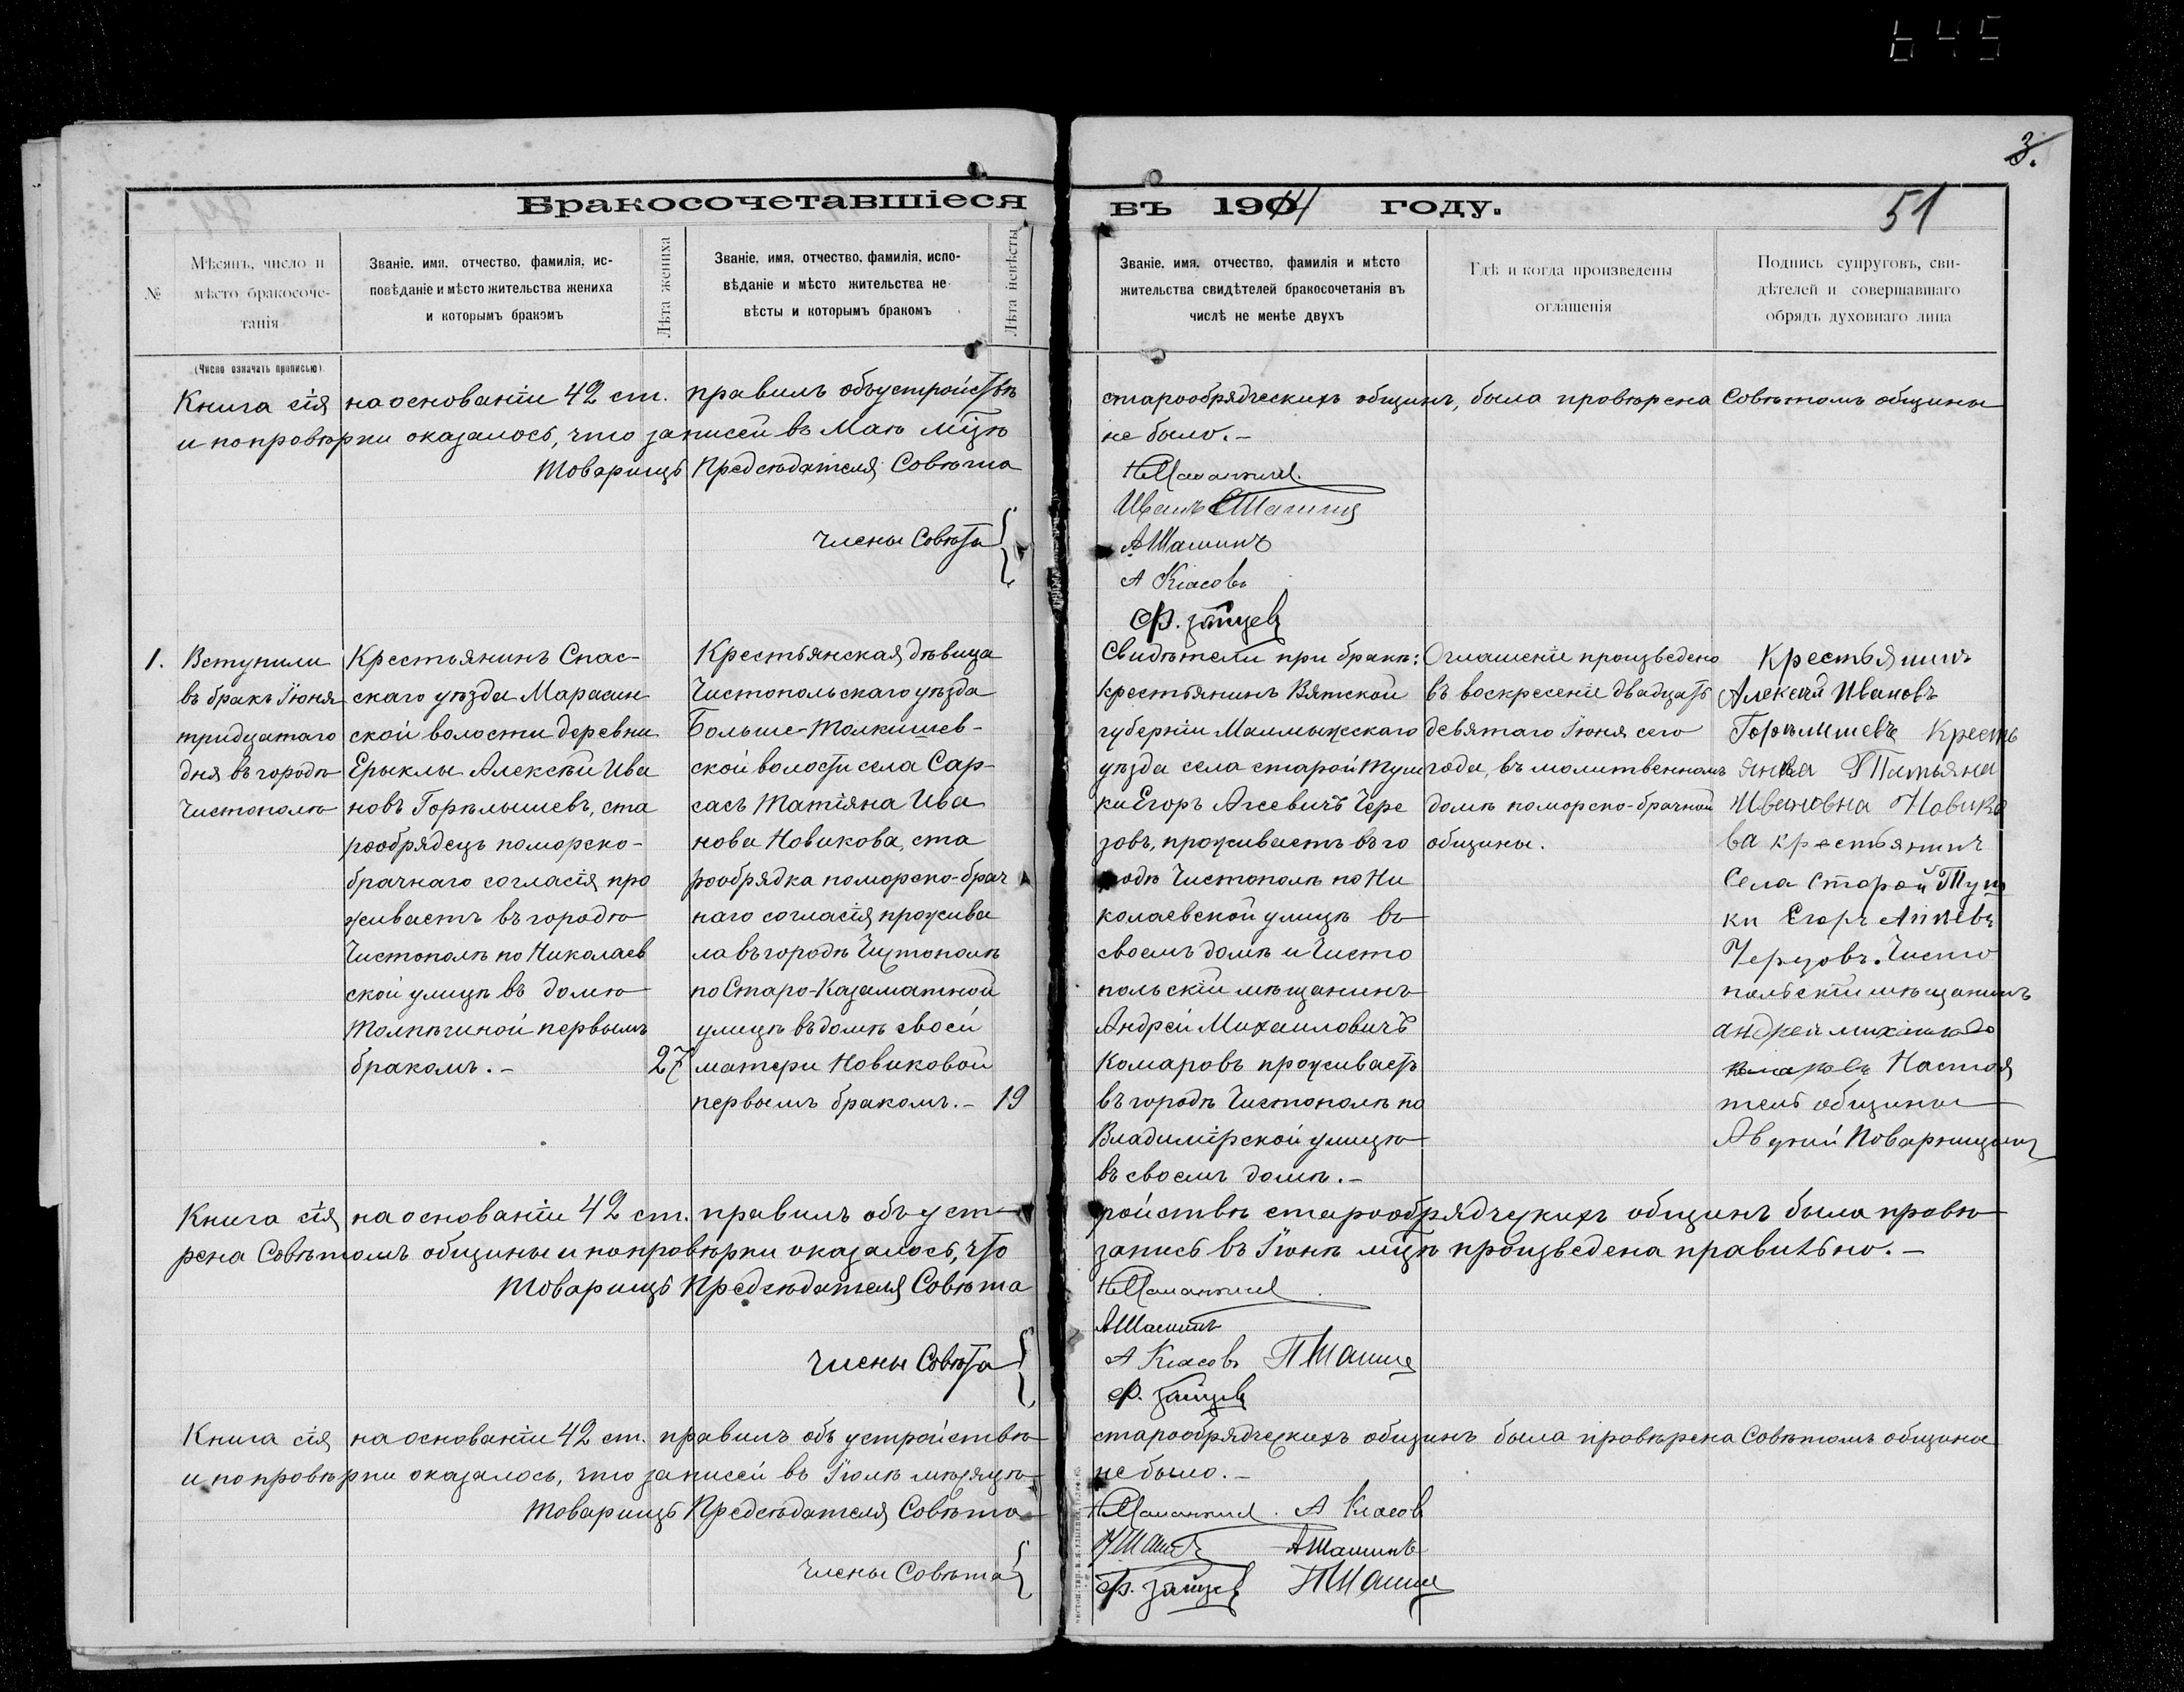 645
3.
Бракосочетавшіеся въ 1914 году.
51
№
Мѣсяцъ, число и
мѣсто бракосоче-
танія
(Число означать прописью)
Званіе, имя, отчество, фамилія, ис-
повѣданіе и мѣсто жительства жениха
и которымъ бракомъ
Лѣта жениха
Званіе, имя, отчество, фамилія, испо-
вѣданіе и мѣсто жительства не-
вѣсты и которымъ бракомъ
Лѣта невѣсты
Званіе, имя, отчество, фамилія и мѣсто
жительства свидѣтелей бракосочетанія въ
числѣ не менѣе двухъ
Гдѣ и когда произведены
оглашенія
Подпись супруговъ, сви-
дѣтелей и совершавшаго
обрядъ духовнаго лица
Книга сія на основаніи 42 ст. правилъ объ устройствѣ старообрядческихъ общинъ, была провѣрена Совѣтомъ общины
и по провѣрки оказалось, что записей въ Маѣ мѣцѣ не было. –
Товарищъ Предсѣдателя Совѣта
Иванъ Шашинъ
Члены Совѣта
А Шашинъ
А Класовъ
Ф. Зайцев
1.
Вступили
въ бракъ Іюня
тридцатаго
дня въ городѣ
Чистополѣ
Крестьянинъ Спас-
скаго уѣзда Марасин
ской волости деревни
Ерыклы Алексѣй Ива
новъ Горѣлышевъ, ста
рообрядецъ поморско-
брачнаго согласія про
живаетъ въ городѣ
Чистополѣ по Николаев
ской улицѣ въ домѣ
Толпѣгиной первымъ
бракомъ. –
27
Крестьянская дѣвица
Чистопольскаго уѣзда
Больше-Толкишев-
ской волости села Сар-
сасъ Татіяна Ива
нова Новикова, ста
рообрядка поморско-брач
наго согласія прожива
ла въ городѣ Чистополѣ
по Старо-Казаматной
улицѣ въ домѣ своей
матери Новиковой
первымъ бракомъ. –
19
Свидѣтели при бракѣ:
крестьянинъ Вятской
губерніи Малмыжскаго
уѣзда села старой Туш
ки Егоръ Агеевичъ Чере
зовъ, проживаетъ въ го
родѣ Чистополѣ по Ни
колаевской улицѣ въ
своемъ домѣ и Чисто
польскій мѣщанинъ
Андрей Михаиловичъ
Комаровъ проживаетъ
въ городѣ Чистополѣ по
Владимірской улицѣ
въ своемъ домѣ. –
Оглашеніе произведено
въ воскресеніе двадцать
девятаго Іюня сего
года, въ молитвенномъ
домѣ поморско-брачной
общины.
Крестьянинъ
Алексѣй Ивановъ
Горѣлышевъ Кресть
янка Татьяна
Ивановна Новико
ва крестьянинъ
Села Старой Туш
ки Егоръ
Черезовъ. Чисто
польскій мѣщанинъ
андрей
комаровъ Настоя
тель общины
Товарищъ Предсѣдателя Совѣта
Книга сія на основаніи 42 ст. правилъ объ уст ройствѣ старообрядческихъ общинъ была провѣ
рена Совѣтомъ общины и по провѣрки оказалось, что запись въ Іюнѣ мѣцѣ произведена правильно. –
Товарищъ Предсѣдателя Совѣта
А Шашинъ
Члены Совѣта
А Класовъ П Шашин
Ф. Зайцев
Книга сія на основаніи 42 ст. правилъ объ устройствѣ старообрядческихъ общинъ была провѣрена Совѣтомъ общины
и по провѣрки оказалось, что записей въ Іюлѣ мѣсяцѣ не было. –
Товарищъ Предсѣдателя Совѣта
А Класов
А Шашинъ
Члены Совѣта
Ф. Зайцев П Шашин